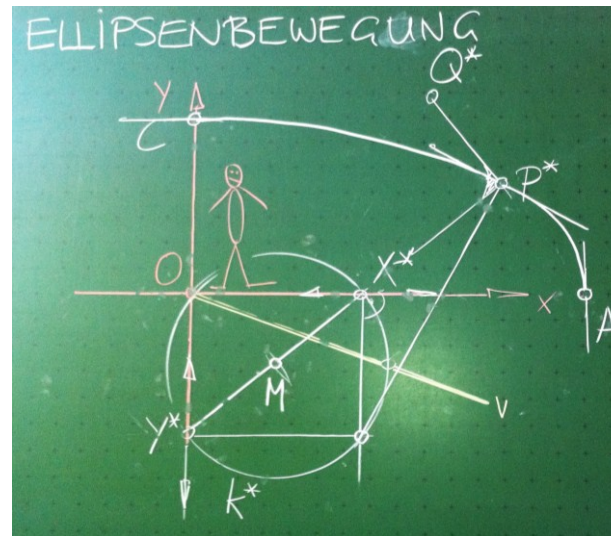 ELLIPSENBEWEGUNG
Q*
Y
C
P*
O
X*
x
A
M
v
Y*
k*